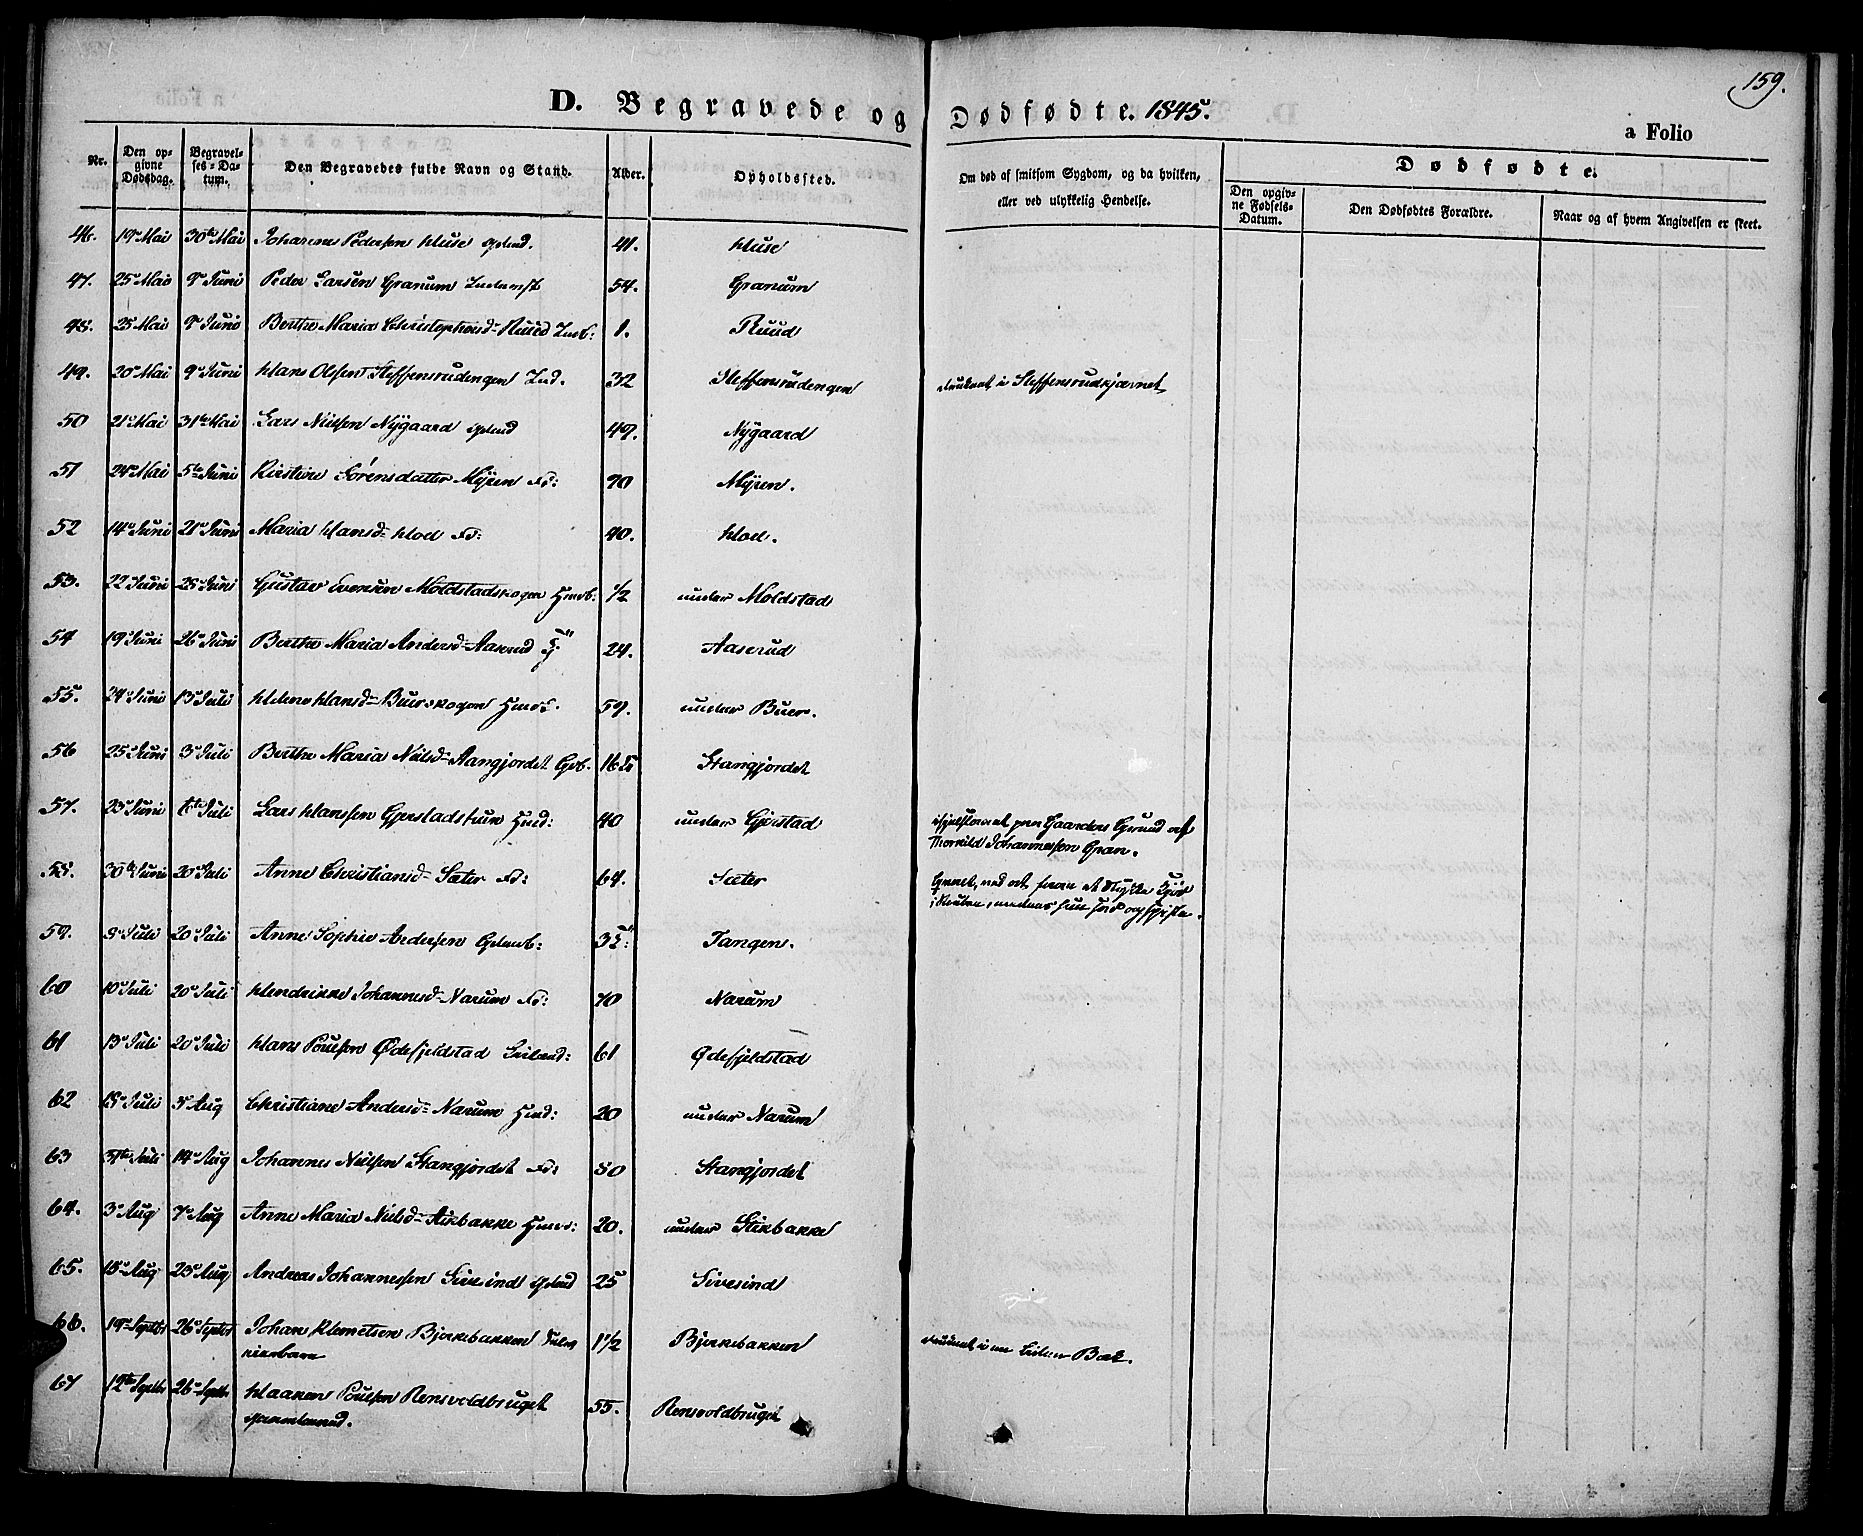 159.
D. Begravede og Dødfødte. 1845.
a Folio
Nr.
Den op-
givne
Dødsdag.
Begravel-
ses-Da-
tum.
Den Begravedes fulde Navn og Stand.
Alder.
Opholdssted.
Om død af smitsom Sygdom, og da hvilken,
eller ved ulykkelig Hendelse.
Dødfødte.
Den opgiv-
ne Fødsels-
Datum.
Den Dødfødtes Forældre.
Naar og af hvem Angivelsen er skeet.
46. 19 Mai 30te Mai Johannes Pedersen Huse 41. Huse
47. 25 Mai 9 Juni Peder Larsen Granum 54. Granum
48. 25 Mai 9 Juni Berthe Maria Christophersd Ruud 1. Ruud
49. 20 Mai 9 Juni Hans Olsen Steffensrudengen Ind. 32 Steffensrudengen druknet i Steffensrudkjærnet
50 21 Mai 31te Mai Lars Nielsen Nygaard 49. Nygaard
51 24 Mai 5te Juni Kirstine Sørensdatter Myren Fd: 70 Myren.
52 14 Juni 21 Juni Maria Hansd Hoel Fd: 40. Hoel.
53. 22 Juni 28 Juni Gustav Evensen Moldstadskogen Husb: 1/2 under Moldstad
54 19 Juni 26 Juni Berthe Maria Andersd Aaserud 24. Aaserud
55. 24 Juni 13 Juli Helene Hansd Buerskogen 59. under Buer.
56 25 Juni 3 Juli Berthe Maria Nielsd Stangjordet Gb. Stangjordet
57. 23 Juni Juli Lars Hanssen Gjerstadstuen Husd: 40 under Gjerstad
ihjelstukket paa Gaardens Grund af
Thorkild Johannessen Gran.
58. 30te Juni 20 Juli Anne Christiansd Sæter Fd: 64. Sæter
et Stykke Kjød
i Struben, medens hun sad og spiste.
59. 8 Juli 20 Juli Anne Sophie Andersen Tangen.
60 10 Juli 20 Juli Hendrikke Johannesd Narum Fd: 70 Narum
61 13 Juli 20 Juli Hans Poulsen Ødefjeldstad 61 Ødefjeldstad
62 18 Juli 3 Aug Christiane Andersd Narum Husd: 20 under Narum
63 31te Juli 14 Aug Johannes Nielsen Stangjordet Fd: 80 Stangjordet
64. 3 Aug 7 Aug Anne Maria Nielsd Stikbakke 20. under Stikbakke
65. 18 Aug 25 Aug Andreas Johannessen Sivesind 25 Sivesind
66. 19 Septbr 26 Septbr Johan Klemetsen Bjerkebakken 1 1/2 Bjerkebakken druknet i en liden Bæk.
67 12te Septbr 26 Septbr Haaken Poulsen Rensvoldbruget 55. Rensvoldbruget